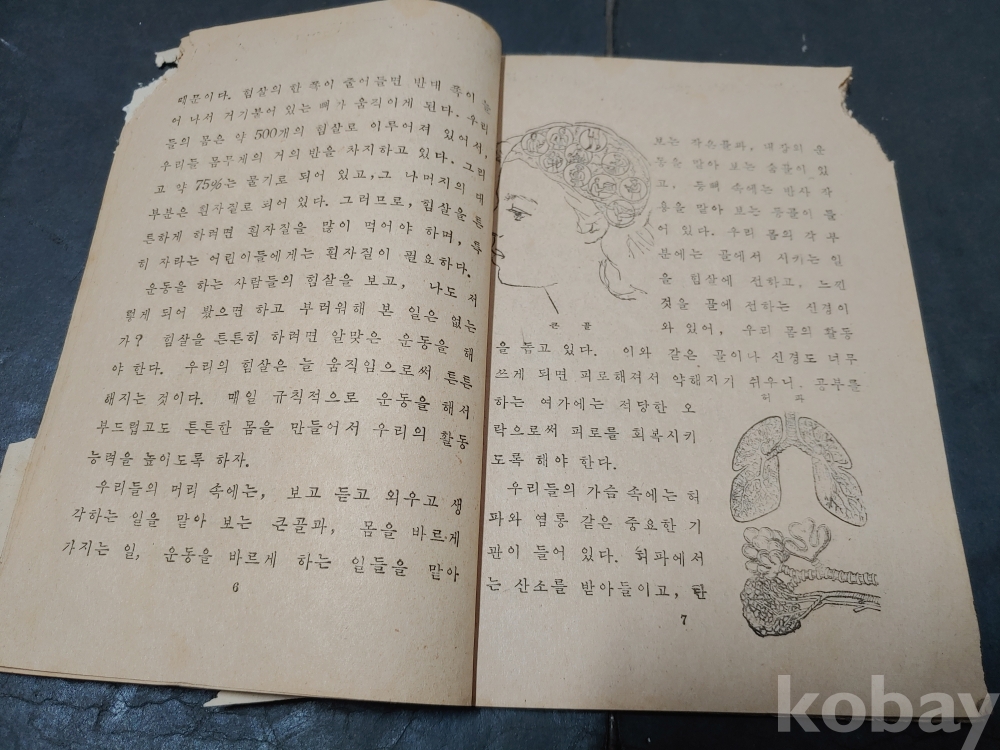 때문이다. 힘살의 한 쪽이 줄어들면 반대 쪽이 늘
어 나서 거기붙어 있는 뼈가 움직이게 된다. 우리
들의 몸은 약 500개의 힘살로 이루어져 있어서,
우리들 몸무게의 거의 반을 차지하고 있다. 그리
고 약 75%는 물기로 되어 있고, 그 나머지의 대
부분은 흰자질로 되어 있다. 그러므로, 힘살을 튼
튼하게 하려면 흰자질을 많이 먹어야 하며, 특
히 자라는 어린이들에게는 흰자질이 필요하다.
운동을 하는 사람들의 힘살을 보고, 나도 저
렇게 되어 봤으면 하고 부러워해 본 일은 없는
가? 힘살을 튼튼히 하려면 알맞은 운동을 해
야 한다. 우리의 힘살은 늘 움직임으로써 튼튼
해지는 것이다. 매일 규칙적으로 운동을 해서
부드럽고도 튼튼한 몸을 만들어서 우리의 활동
능력을 높이도록 하자.
우리들의 머리 속에는, 보고 듣고 외우고 생
각하는 일을 맡아 보는 큰골과, 몸을 바르게
가지는 일, 운동을 바르게 하는 일들을 맡아
6
보는 작은골과, 내장의 운
동을 맡아 보는 숨골이 있
고, 등뼈 속에는 반사 작
용을 맡아 보는 등골이 들
어 있다. 우리 몸의 각 부
분에는 골에서 시키는 일
을 힘살에 전하고, 느낀
것을 골에 전하는 신경이
와 있어, 우리 몸의 활동
큰 골
을 돕고 있다. 이와 같은 골이나 신경도 너무
쓰게 되면 피로해져서 약해지기 쉬우니, 공부를
하는 여가에는 적당한 오
락으로써 피로를 회복시키
도록 해야 한다.
우리들의 가슴 속에는 허
파와 염통 같은 중요한 기
관이 들어 있다. 허파에서
는 산소를 받아들이고, 탄
허 파
7
kobay